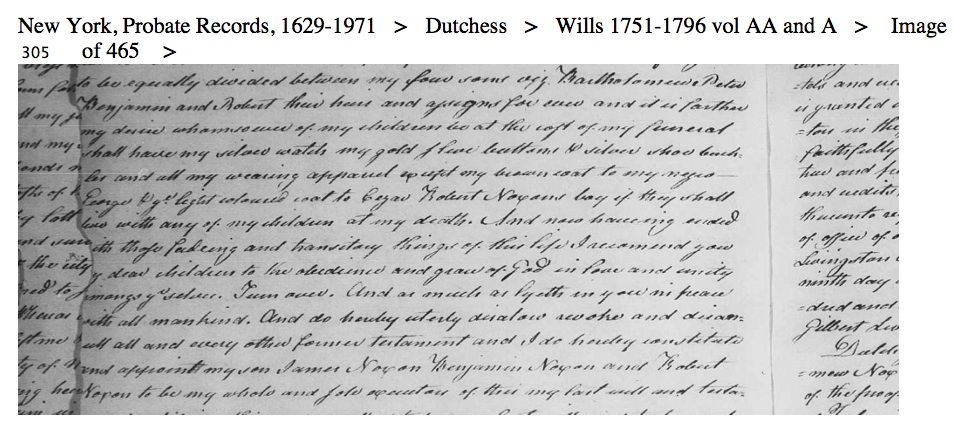 New York, Probate Records, 1629-1971 > Dutchess > Wills 1751-1796 vol AA and A > Image
305 of 465 >
to be equally divided between my four sons viz. Bartholomew Peter
Benjamin and Robert their heirs and assigns for ever and it is farther
my desire whomsoever of my children be at the cost of my funeral
shall have my silver watch my gold sleve buttons & silver shoe buck-
les and all my wearing apparel except my brown coat to my negro
George & ye light coloured coat to Cezar Robert Noxons boy if they shall
live with any of my children at my death. And now haveing ended
with those fadeing and transitory things of this life I recomend you
my dear children to the obedience and grace of God in love and unity
amongs yr selves. I am over. And as much as lyeth in you in peace
with all mankind. And do hereby uterly disalow revoke and disan-
null all and every other former testament and I do hereby constitute
and appoint my son James Noxon Benjamin Noxon and Robert
Noxon to be my whole and sole executors of this my last will and testa-
-tols and
is granted
-tors in the
faithfully
and credits
thereunto
of office of
Livingston
ninth day
-dred and
Gilbert
-mew Nox
of the proof